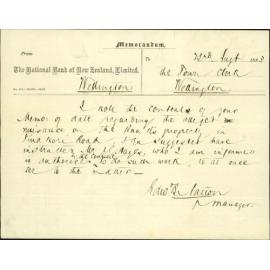 Memorandum.
From To
The National Bank of New Zealand, Limited. 22nd Sept 1893
the Town Clerk
Wellington Wellington
I note the contents of your
Memo of date regarding the alleged
nuisance on the Bank's property in
Road & as suggested have
instructed Mr who I am informed
is authorised to do such work, to at once
see to the matter
Manager.